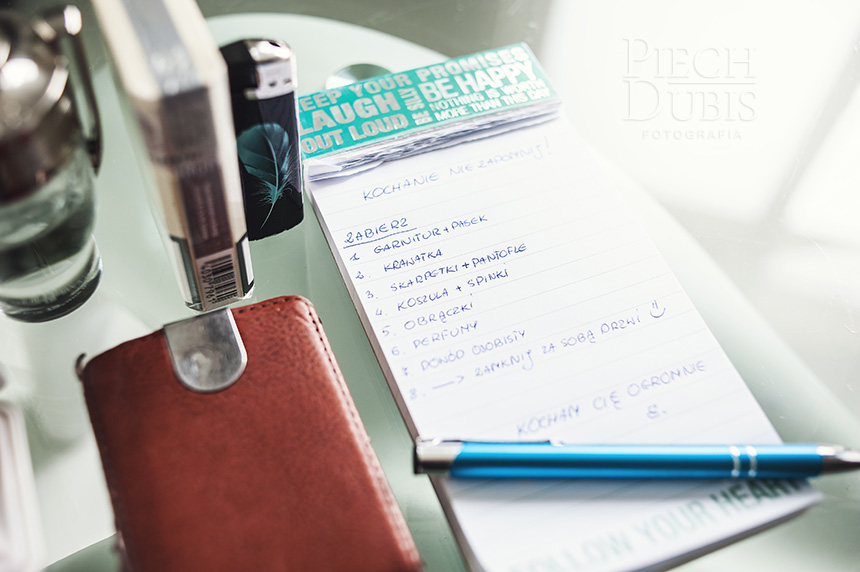 PIECH
DUBIS
FOTOGRAFIA
KEEP YOUR PROMISES
LAUGH
OUT LOUD
BE HAPPY
NOTHING IS WORTH
MORE THAN THIS
KOCHANIE NIE ZAPOMNIJ!
ZABIERZ
1. GARNITUR + PASEK
2. KRAWATKA
3. SKARPETKI + PANTOFLE
4. KOSZULA + SPINKI
5. OBRĄCZKI
6. PERFUMY
7. DOWÓD OSOBISTY
8. → ZAMKNIJ ZA SOBĄ DRZWI
KOCHAM CIĘ OGROMNIE
S.
FOLLOW YOUR HEART